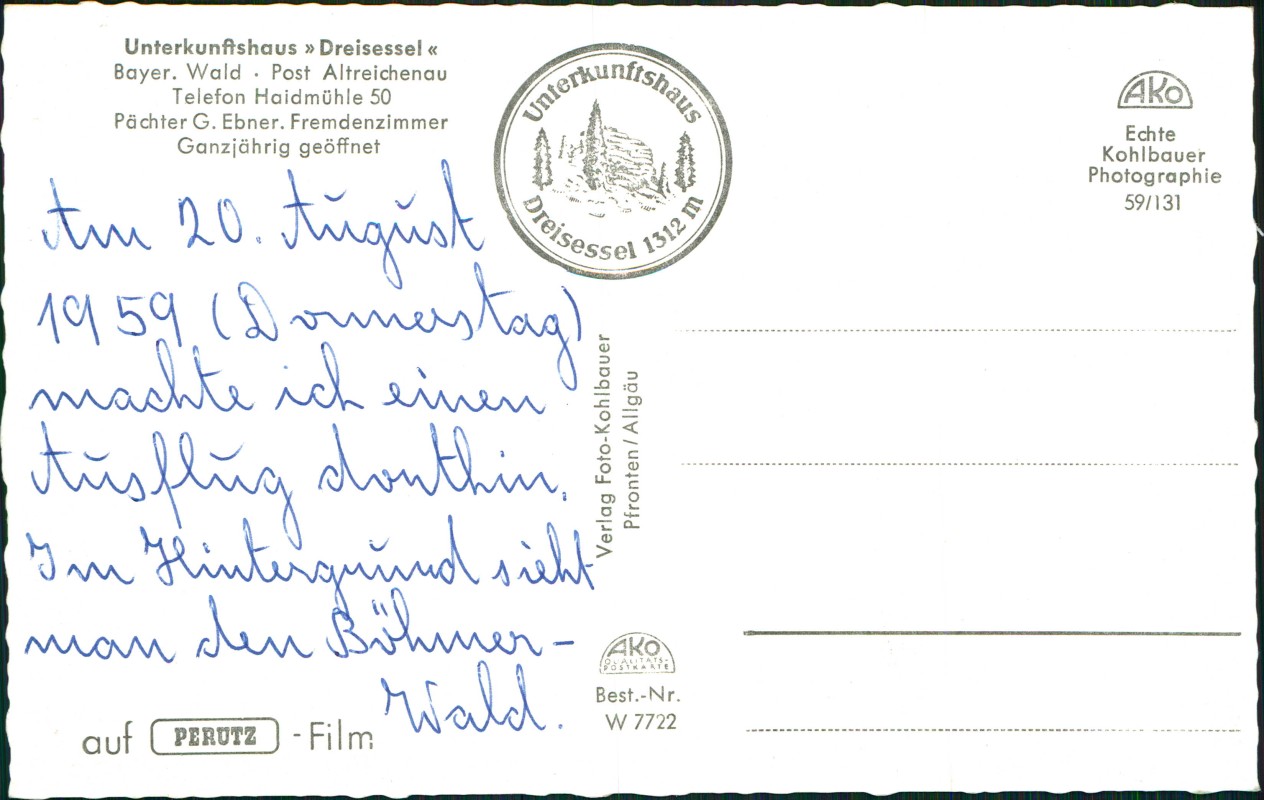 Unterkunftshaus »Dreisessel«
Bayer. Wald · Post Altreichenau
Telefon Haidmühle 50
Pächter G. Ebner. Fremdenzimmer
Ganzjährig geöffnet
Unterkunftshaus
Dreisessel 1312 m
AKO
Echte
Kohlbauer
Photographie
59/131
Am 20. August
1959 (Donnerstag)
machte ich einen
Ausflug dorthin.
Im Hintergrund sieht
man den Böhmer-
Wald.
Verlag Foto-Kohlbauer
Pfronten/Allgäu
AKO
QUALITÄTS-
POSTKARTE
Best.-Nr.
W 7722
auf PERUTZ -Film